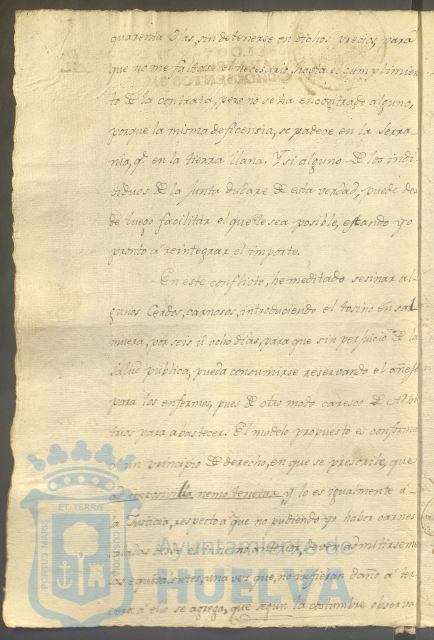 quarenta Dias, sin detenerse en dichos precios, para
que no me faltase el necesario, hasta el cumplimien
to de la contrata, pero no se ha encontrado alguno,
porque la misma deficensia, se padece en la Serra
nia, qe. en la tierra llana. Y si alguno de los indi
biduos de la Junta dudare de esta verdad, puede des
de luego facilitar el que le sea posible, estando yo
pronto a reintegrar el importe.
En este conflicto, he meditado sesinar al
gunos Cerdos, carnosos, introduciendo el tosino en sal
muera, por seis ú ocho dias, para que sin perjuicio de la
salud publica, pueda consumirse reservando el añejo
para los enfermos, pues de otro modo caresco de Arbi
trios para abastecer. El modelo propuesto es conforme
un principio de derecho, en que se prescribe, que
nemo tenetur, y lo es igualmente á
la Justicia, respecto a que no pudiendo yo haber carnes
saladas de y el tosino anterior, deven admitirseme
los equibalentes, una vez que, no refieran daño á ter
cero: á ello se agrega, que segun la costumbre observa
PORTUS MARIS
ET TERRÆ
CUSTODIA
Ayuntamiento de
HUELVA